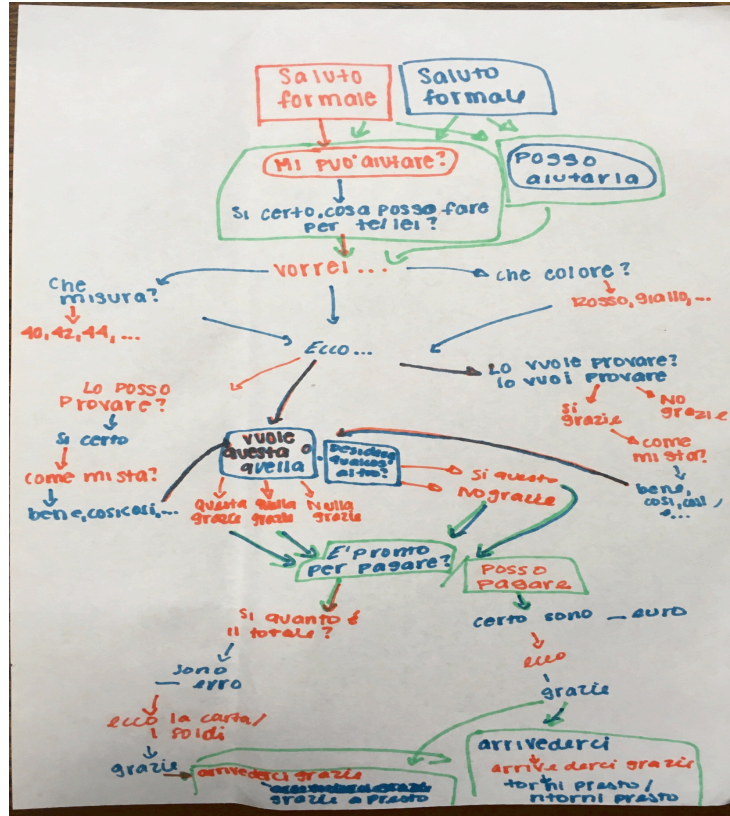 Saluto
formale
Saluto
formale
Mi può aiutare?
Posso
aiutarla
Si certo, cosa possa fare
per te/lei?
vorrei ...
Che
misura?
40, 42, 44, ...
che colore?
Rosso, giallo, ...
Ecco...
Lo posso
provare?
Si certo
come mi sta?
bene, cosicosi, ...
Lo vuole provare?
lo vuoi provare
Si
grazie
No
grazie
come
mi sta?
bene,
cosi, cosi,
...
vuole
questa o
quella
Desidera
altro?
Questa
grazie
grazie
Nulla
grazie
Si questo
No grazie
E' pronto
per pagare?
Posso
pagare
Si quanto é
il totale?
sono
— euro
ecco la carta/
i soldi
grazie
certo sono — euro
ecco
grazie
arrivederci grazie
grazie a presto
arrivederci
arrivederci grazie
torni presto/
ritorni presto